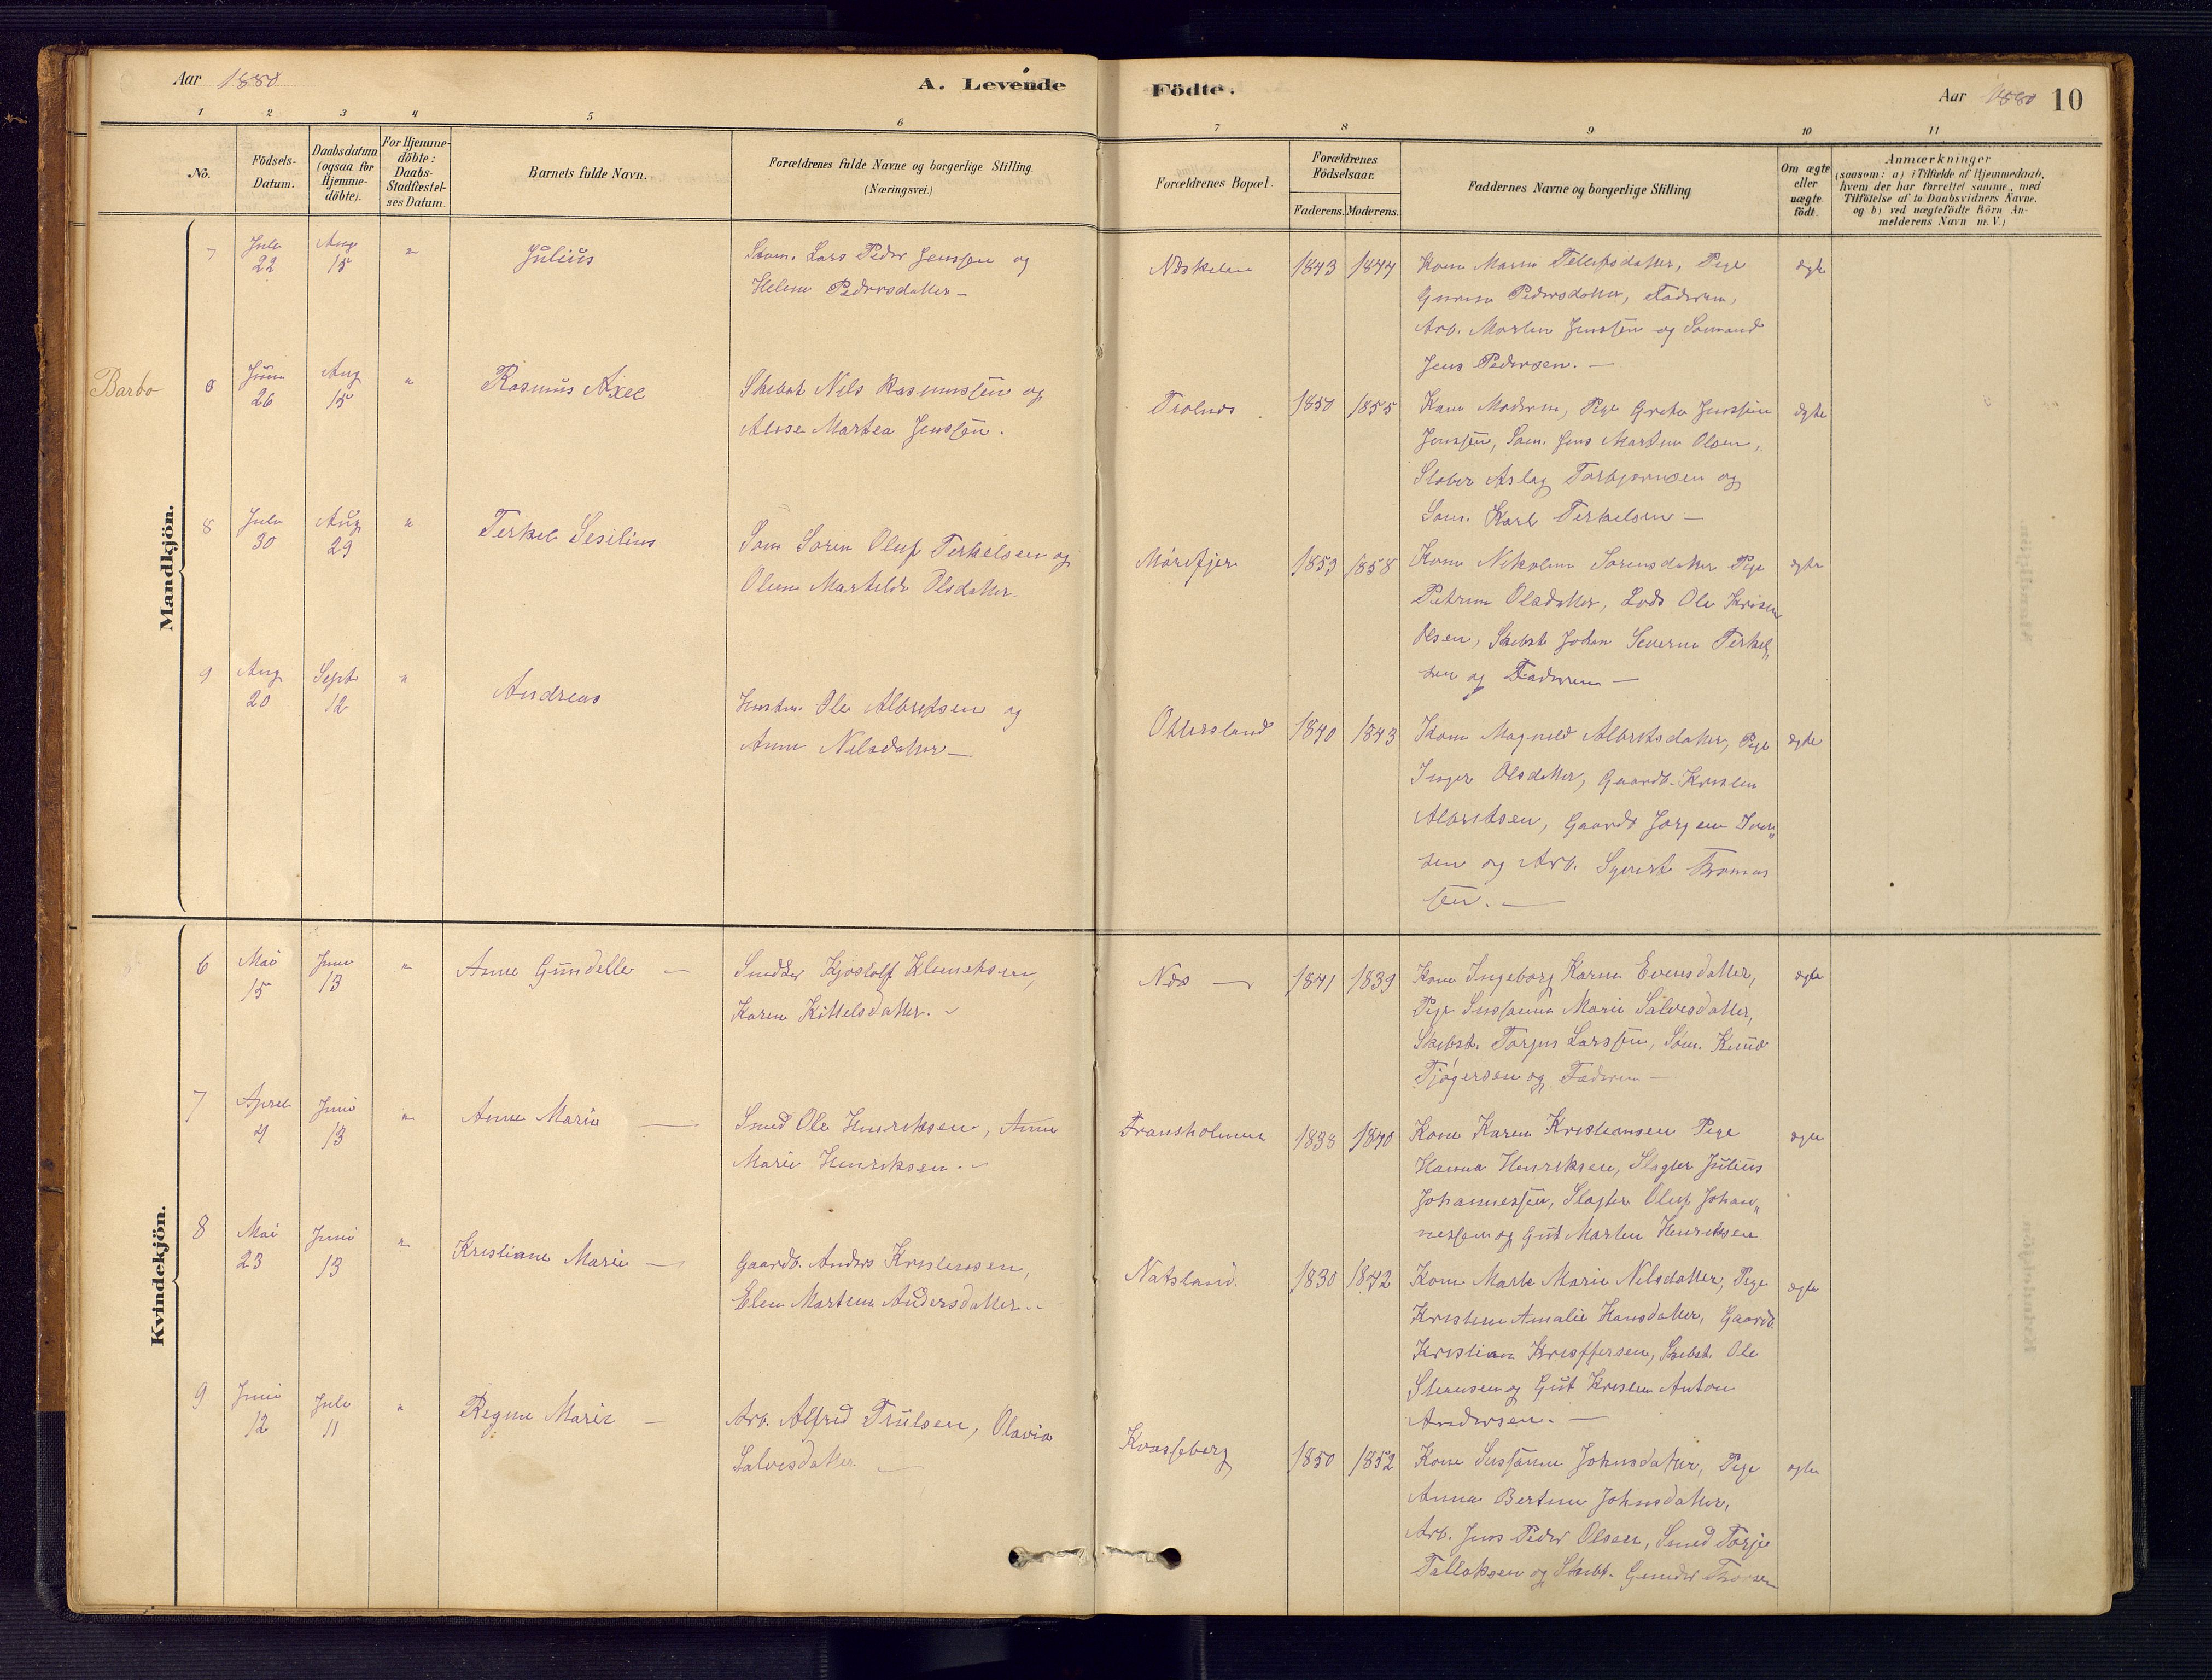 Aar 1880
A. Levende
Födte.
Aar 1880 10
1 2 3 4 5 6 7 8 9 10 11
No.
Födsels-
Datum.
Daabsdatum
(ogsaa för
Hjemme-
döbte).
For Hjemme-
döbte:
Daabs-
Stadfæstel-
ses Datum.
Barnets fulde Navn.
Forældrenes fulde Navne og borgerlige Stilling.
(Næringsvei.)
Forældrenes Bopæl.
Forældrenes
Födselsaar.
Faderens. Moderens.
Faddernes Navne og borgerlige Stilling
Om ægte
eller
uægte
födt.
Anmærkninger
(saasom: a) i Tilfælde af Hjemmedaab,
hvem der har forrettet samme, med
Tilföielse af to Daabsvidners Navne.
og b) ved uægtefödte Börn An-
melderens Navn m.V.)
Mandkjön.
7
Juli
22
Aug
15
"
Julius
Søm. Lars Peder Jenssen og
Helene Pedersdatter -
Neskilen
1843 1844
Kone Maren Tellefsdatter, Pige
Gurine Pedersdatter, Faderen,
Arb. Morten Jenssen og Sømand
Jens Pedersen. -
ægte
Barbo
8
Juni
26
Aug
15
"
Rasmus Axel
Skibst Nils Rasmussen og
Aase Martea Jenssen.
1850 1855
Kone Moderen, Pige Grete Jenssen
Jenssen, Søm. Jens Martin Olsen,
Aslag Torbjørnsen og
Søm. Karl Terkelsen -
ægte
8
Juli
30
Aug
29
"
Terkel Sesilius
Søm Søren Oluf Terkelsen og
Oline Matilde Olsdatter.
Mørefjer
1859 1858
Kone Nikoline Sørensdatter Pige
Petrine Olsdatter, Lods Ole
Olsen, Skibst Johan Severin Terkel„
sen og Faderen -
ægte
9
Aug
20
Sept
12
"
Andreas
Husm. Ole Albretsen og
Anne Nilsdatter -
Ottersland
1840 1843
Kone Magnild Albretsdatter, Pige
Inger Olsdatter, Gaardb. Kristen
Albretsen, Gaardb Jørgen Iver„
sen og Arb. Syvert Thomas
sen. -
ægte
Kvindekjön.
6
Mai
15
Juni
13
"
Anne Gundelle -
Kjøstolf Klemetsen,
Karen Kittelsdatter. -
Næs -
1841 1839
Kone Ingeborg Karine Evensdatter,
Pige Sussanna Marie Salvesdatter,
Skibst. Torjus Larssen, Søm. Knud
Tjøgersen og Faderen -
ægte
7
April
4
Juni
13
"
Anne Marie -
Smed Ole Henriksen, Anne
Marie Henriksen. -
Fransholmen
1838 1840
Kone Karen Kristiansen Pige
Hanna Henriksen, Slagter Julius
Johannessen, Slagter Oluf Johan„
nessen og Gut Morten Henriksen
ægte
8
Mai
23
Juni
13
"
Kristiane Marie -
Gaardb. Anders Kristensen,
Elen Martine Andersdatter. -
Natsland.
1830 1842
Kone Marte Marie Nilsdatter, Pige
Kristine Amalie Hansdatter, Gaardb.
Kristian Kristffersen, Skibst. Ole
Steensen og Gut Kristen Anton
Andersen. -
ægte
9
Juni
12
Juli
11
"
Regine Marie -
Arb. Alfred Trulsen, Olavia
Salvesdatter -
Kvasseberg
1850 1852
Kone Sussanne Johnsdatter, Pige
Anna Bertine Johnsdatter,
Arb. Jens Peder Olsen, Smed Torje
Tellaksen og Skibst. Gunder Thorsen
ægte